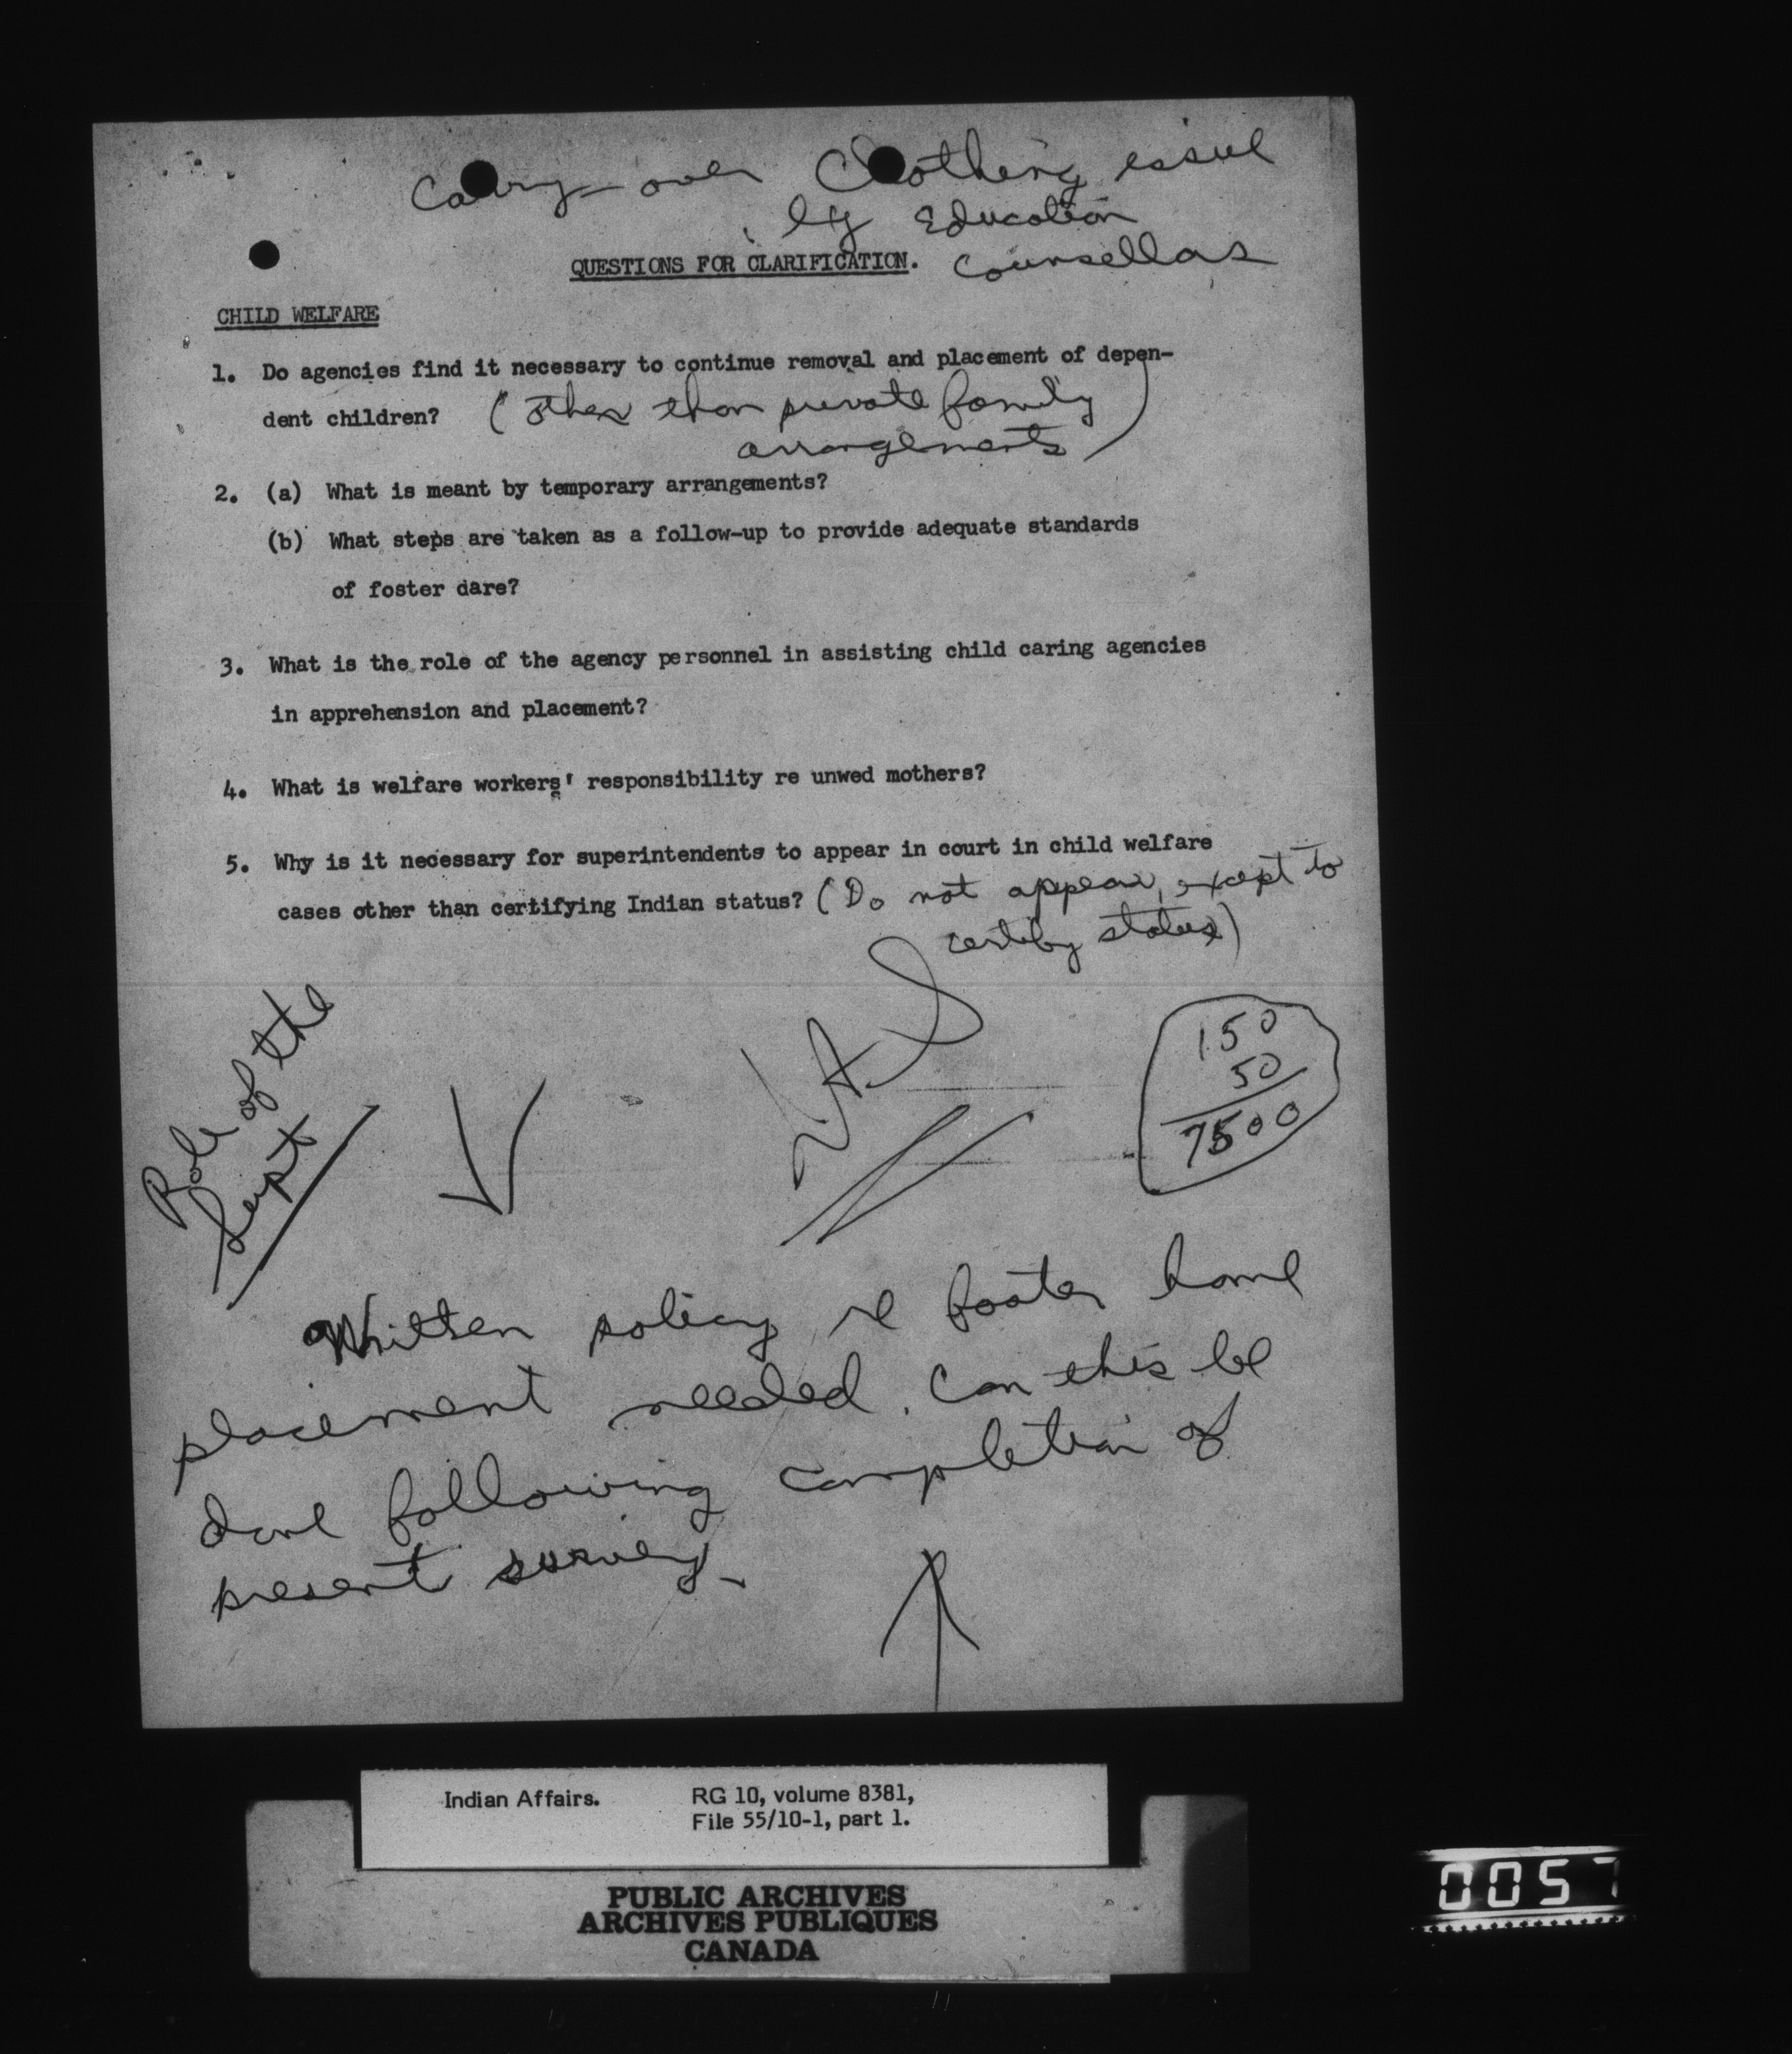 Carry-over Clothing issue
by Education
Counsellors
QUESTIONS FOR CLARIFICATION.
CHILD WELFARE
1. Do agencies find it necessary to continue removal and placement of depen-
dent children? (Other than private family
arrangements)
2. (a) What is meant by temporary arrangements?
(b) What steps are taken as a follow-up to provide adequate standards
of foster dare?
3. What is the role of the agency personnel in assisting child caring agencies
in apprehension and placement?
4. What is welfare workers' responsibility re unwed mothers?
5. Why is it necessary for superintendents to appear in court in child welfare
cases other than certifying Indian status? (Do not appear, except to
certify status)
Role of the
Supt
150
50
7500
Written policy re foster home
placement needed. Can this be
done following completion of
present survey
Indian Affairs. RG 10, volume 8381,
File 55/10-1, part 1.
PUBLIC ARCHIVES
ARCHIVES PUBLIQUES
CANADA
0057